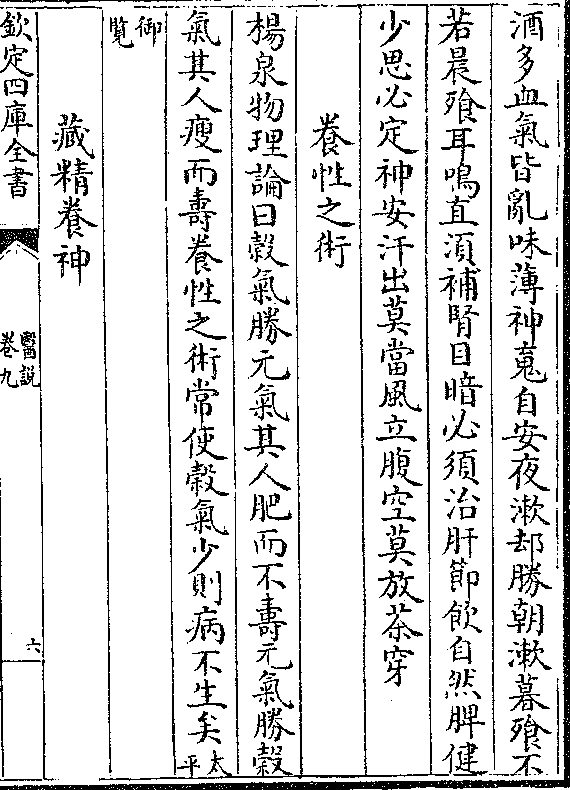 酒多血氣皆亂味薄神䰟自安夜漱却勝朝漱暮飱不
若晨飱耳鳴直湏補腎目暗必須治肝節飲自然脾健
少思必定神安汗出莫當風立腹空莫放茶穿
養性之術
楊泉物理論曰穀氣勝元氣其人肥而不壽元氣勝穀
氣其人瘦而壽養性之術常使穀氣少則病不生矣太平
御覽
藏精養神
欽定四庫全書
醫説
卷九
六